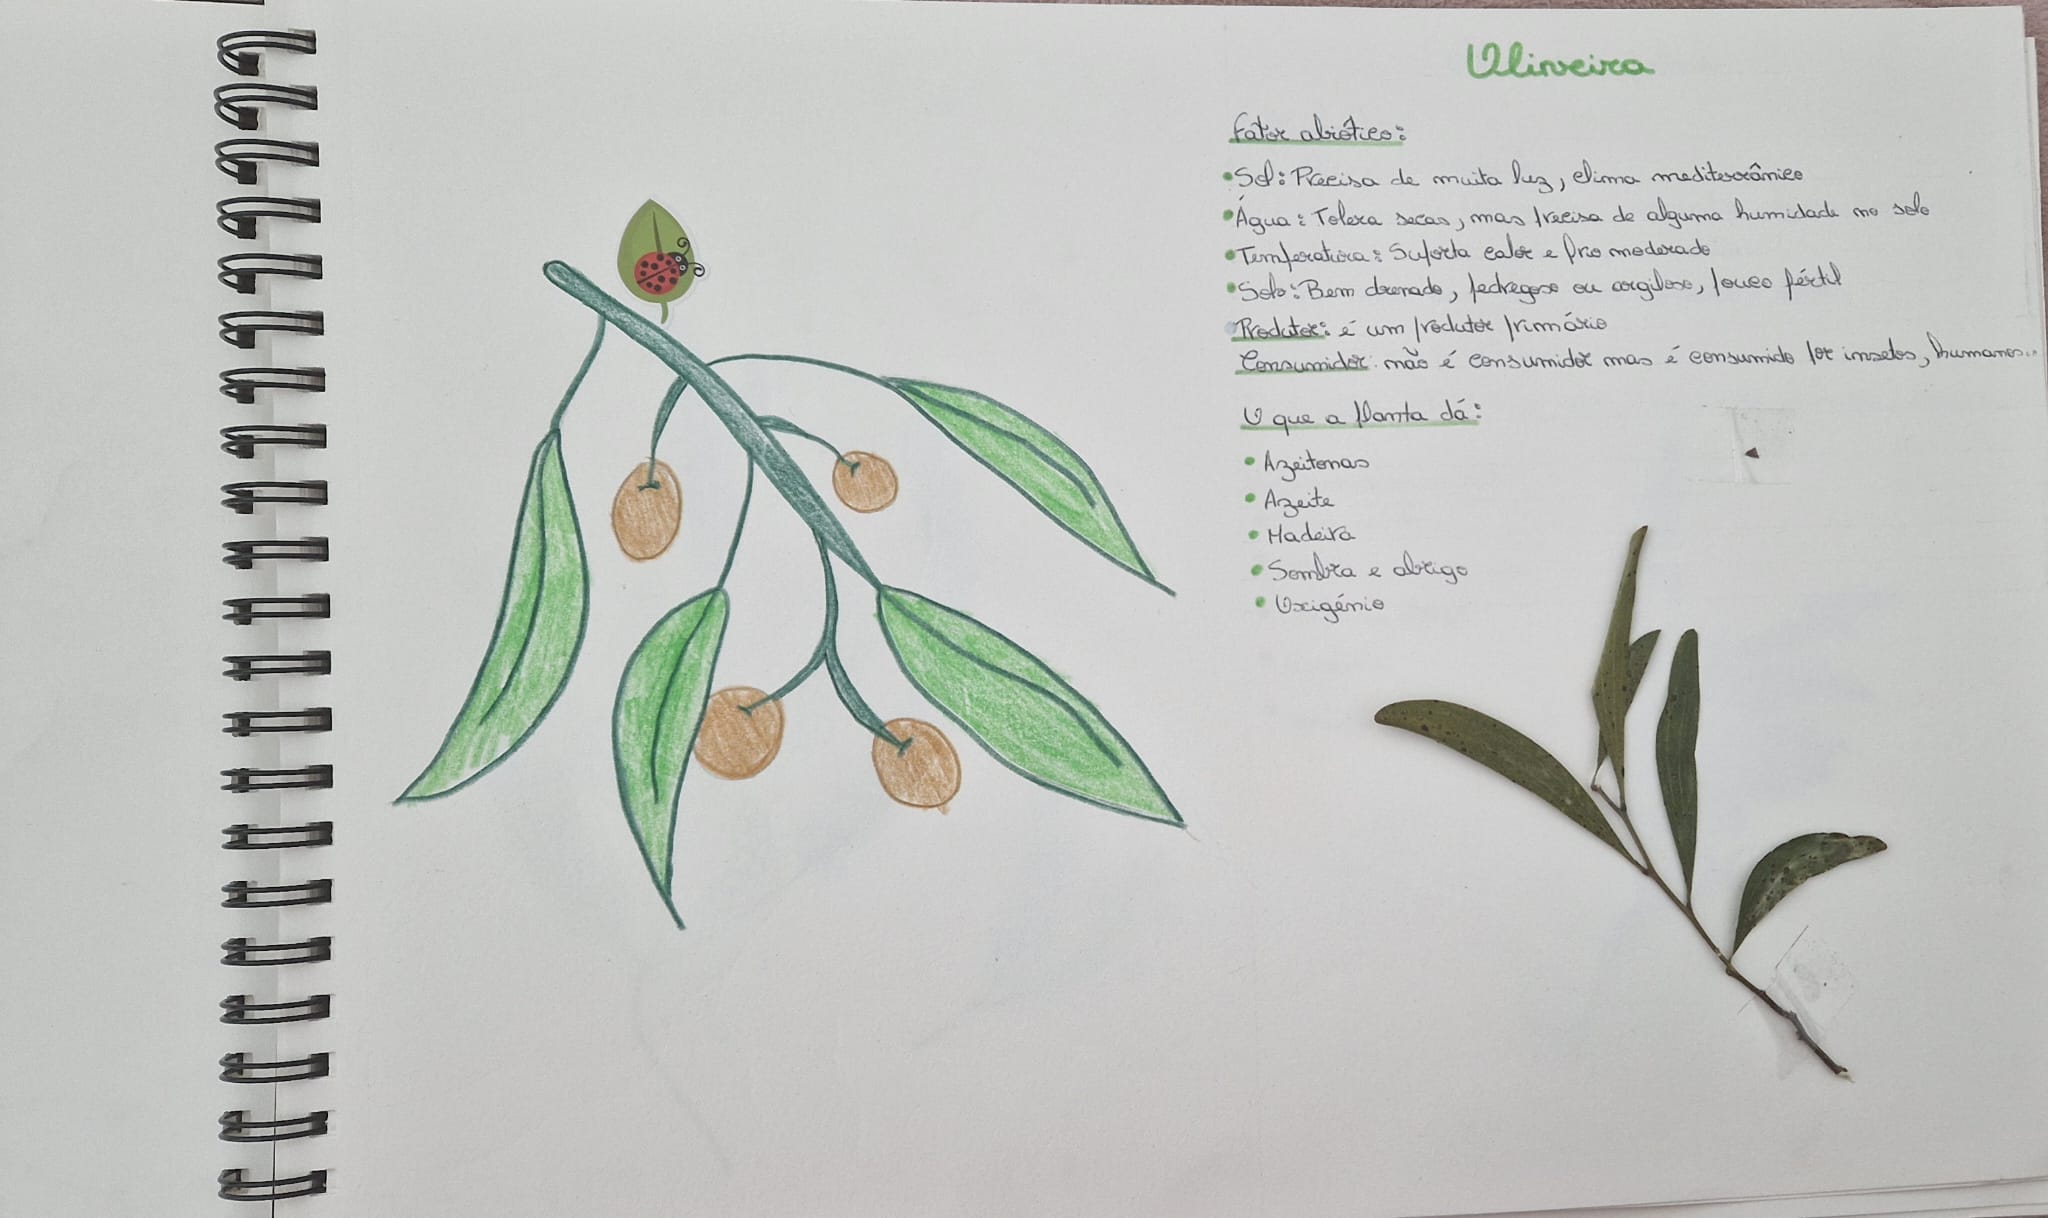 Oliveira
Fator abiótico:
• Sol: Precisa de muita luz, clima mediterrânico
• Água: Tolera secas, mas precisa de alguma humidade no solo
• Temperatura: Suporta calor e frio moderado
• Solo: Bem drenado, pedregoso ou argiloso, pouco fértil
Produtor: é um produtor primário
Consumidor: não é consumidor mas é consumido por insetos, humanos...
O que a planta dá:
• Azeitonas
• Azeite
• Madeira
• Sombra e abrigo
• Oxigénio